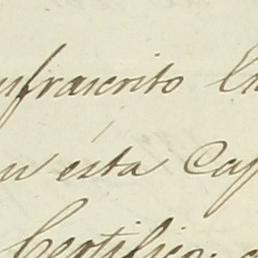 nfrascrito En
en ésta Cap
Certifico: q